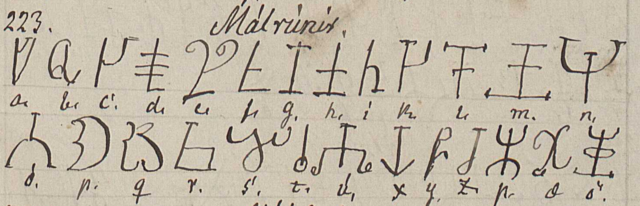 223. Málrúnir.
a. b. c. d. e. f. g. h. i k. l. m. n.
o. p. q r. s. t. u. x y. z. þ. æ ö.